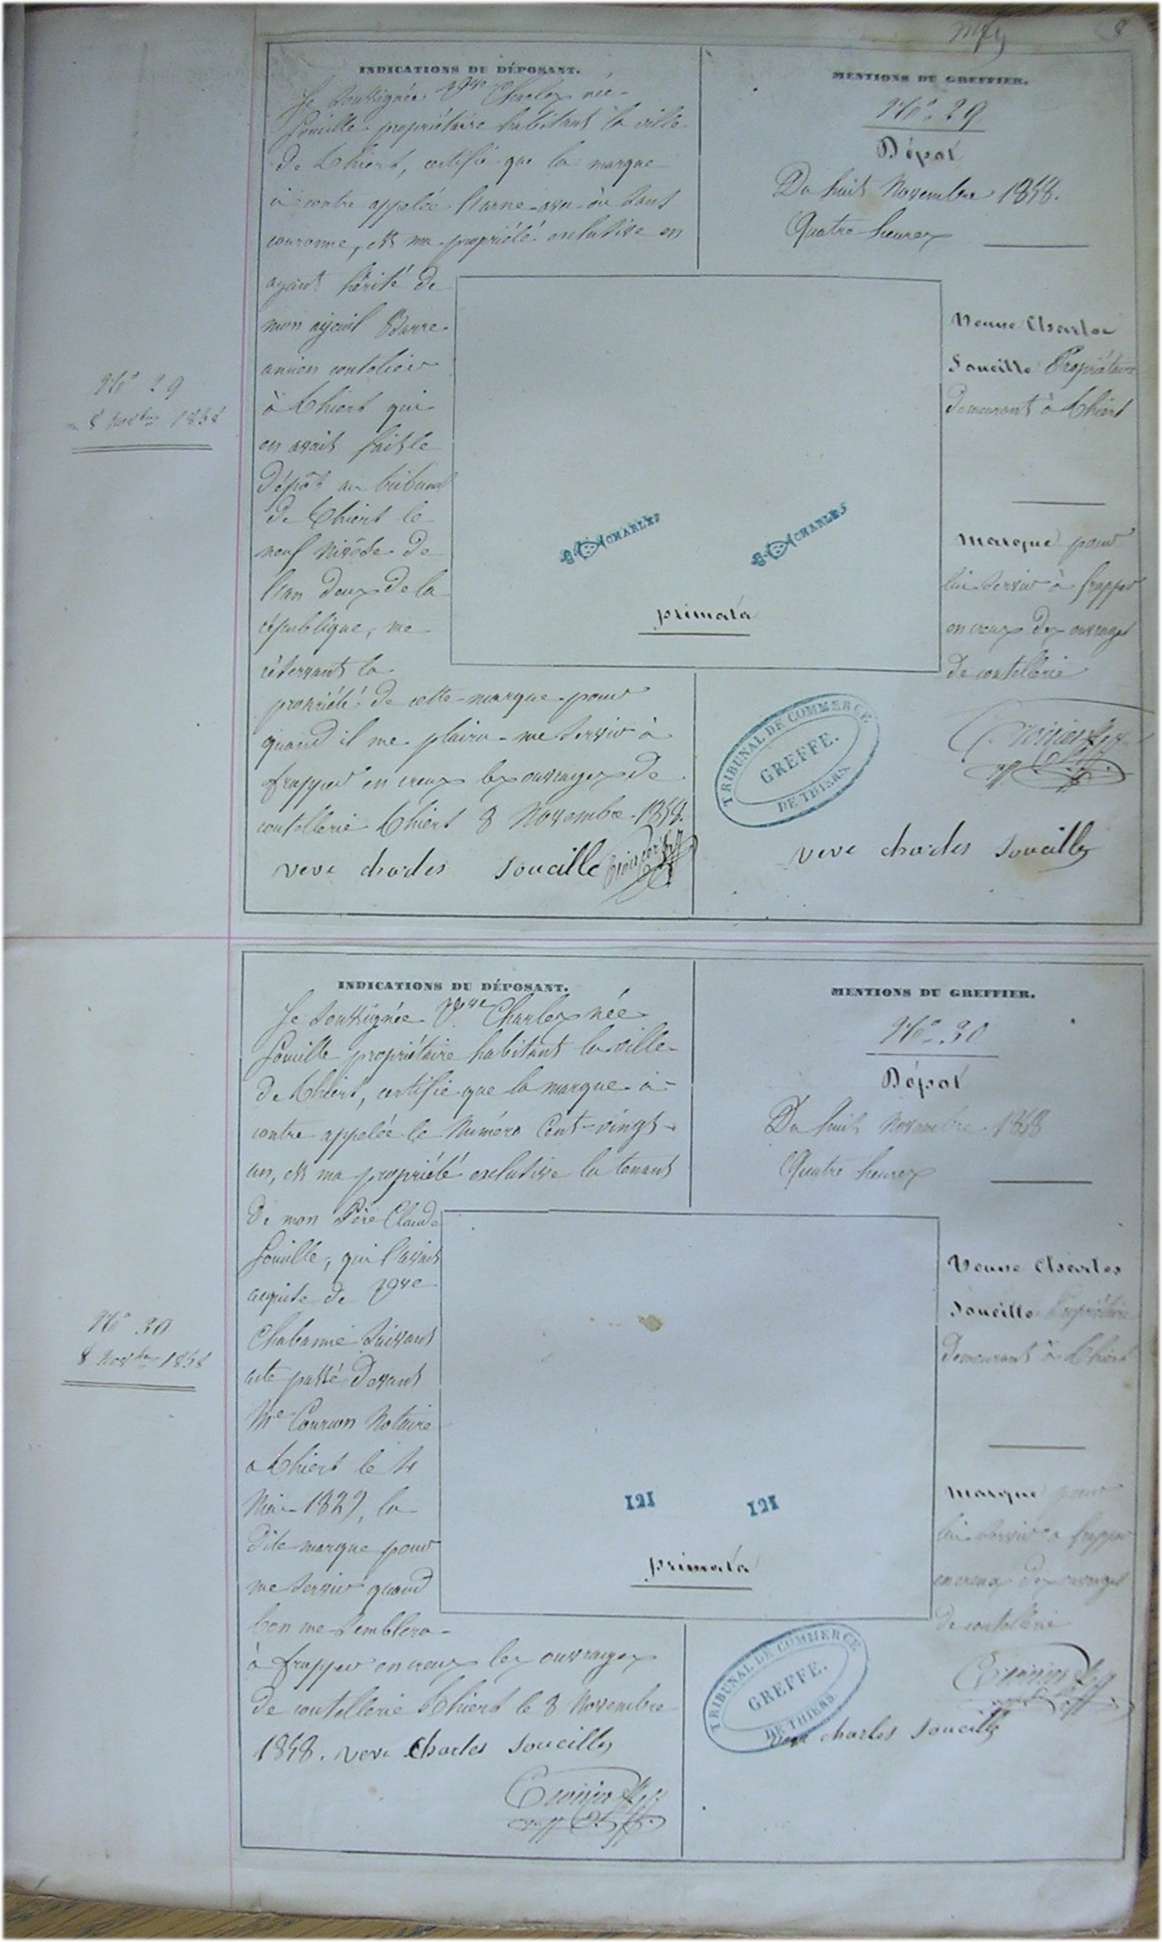 8
INDICATIONS DU DÉPOSANT.
Je soussignée Vve Charles née
Souille propriétaire habitant la ville
de Thiers, certifie que la marque
ci contre appelée
couronne, est ma propriété exclusive en
ayant hérité de
mon ayeuil Barre
ancien coutelier
à Thiers qui
en avait fait le
dépôt au tribunal
de Thiers le
neuf Nivôse de
l'an deux de la
république, me
réservant la
propriété de cette marque pour
quand il me plaira me servir à
frapper en creux les ouvrages de
coutellerie Thiers 8 Novembre 1858.
veve charles Soucille
MENTIONS DU GREFFIER.
No. 29
Dépot
Du huit Novembre 1858.
Quatre heures
Veuve Charles
Soucille Propriétaire
demeurant à Thiers
Marque pour
lui servir à frapper
en creux des ouvrages
de coutellerie
CHARLES
CHARLES
primata
TRIBUNAL DE COMMERCE
GREFFE.
DE THIERS.
veve charles Soucille
No 29
8 Novbre 1858
INDICATIONS DU DÉPOSANT.
Je soussignée Vve Charles née
Souille propriétaire habitant la ville
de Thiers, certifie que la marque ci-
contre appelée le Numéro Cent-vingt-
un, est ma propriété exclusive la tenant
de mon Père Claude
Souille, qui l'avait
acquise de Vve
Chabanne suivant
acte passé devant
Me Notaire
à Thiers le 4
Mai 1829, la
dite marque pour
me servir quand
bon me semblera
à frapper en creux les ouvrages
de coutellerie Thiers le 8 Novembre
1858. veve Charles Soucille
MENTIONS DU GREFFIER.
No. 30
Dépot
Du huit Novembre 1858
Quatre heures
Veuve Charles
Soucille Propriétaire
demeurant à Thiers
Marque pour
lui servir à frapper
en creux des ouvrages
de coutellerie
121 121
primata
TRIBUNAL DE COMMERCE
GREFFE.
DE THIERS.
veve charles Soucille
No 30
8 Novbre 1858